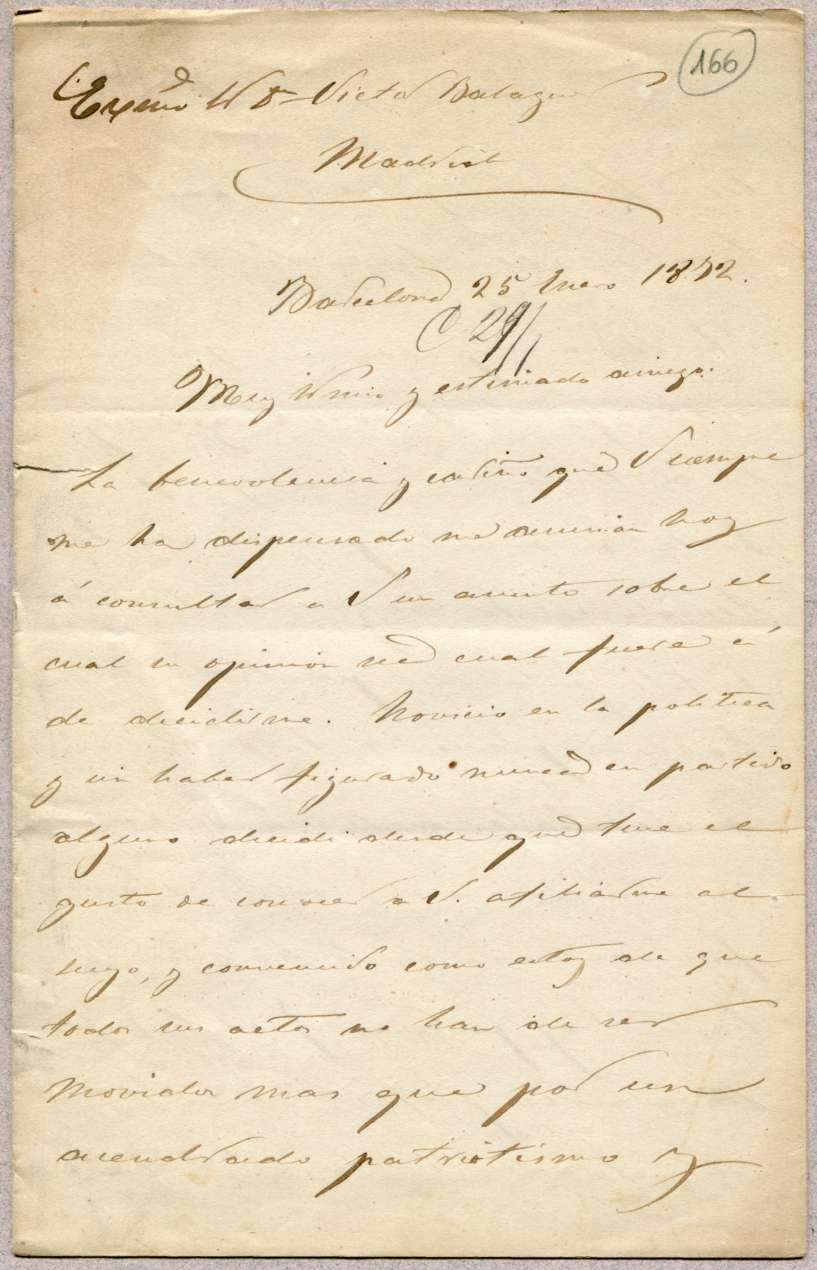 166
Exmo Sr Dn Victor Balaguer
Madrid
Barcelona 25 Enero 1872.
C 29/1
Muy Sr mio y estimado amigo.
La benevolencia y cariño que siempre
me ha dispensado me animan hoy
á consultar a V un asunto sobre el
cual su opinion sea cual fuere há
de decidirme. Novicio en la politica
y sin haber figurado nunca en partido
alguno decidi desde que tuve el
gusto de conocer a V. afiliarme al
suyo, y convencido como estoy de que
todos sus actos no han de ser
movidos mas que por un
acendrado patriotismo y